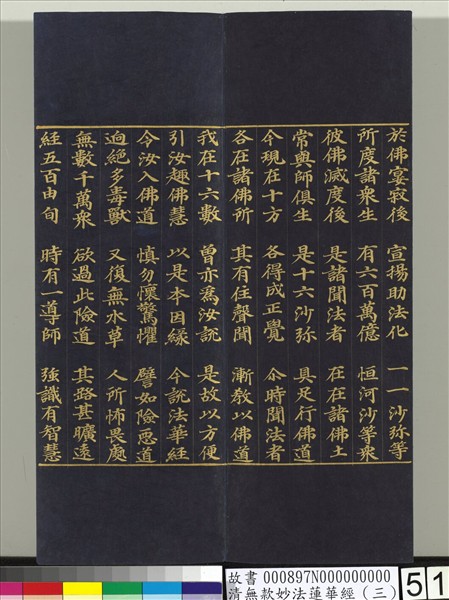 於佛宴寂後 宣揚助法化 一一沙弥等
所度諸衆生 有六百萬億 恒河沙等衆
彼佛滅度後 是諸聞法者 在在諸佛土
常與師俱生 是十六沙弥 具足行佛道
今現在十方 各得成正覺 尒時聞法者
各在諸佛所 其有住聲聞 漸教以佛道
我在十六數 曾亦爲汝說 是故以方便
引汝趣佛慧 以是本因緣 今說法華經
令汝入佛道 慎勿懷驚懼 譬如險惡道
逈絕多毒獸 又復無水草 人所怖畏處
無數千萬衆 欲過此險道 其路甚曠遠
經五百由旬 時有一導師 強識有智慧
故書 000897N000000000
清無款妙法蓮華經（三）
51